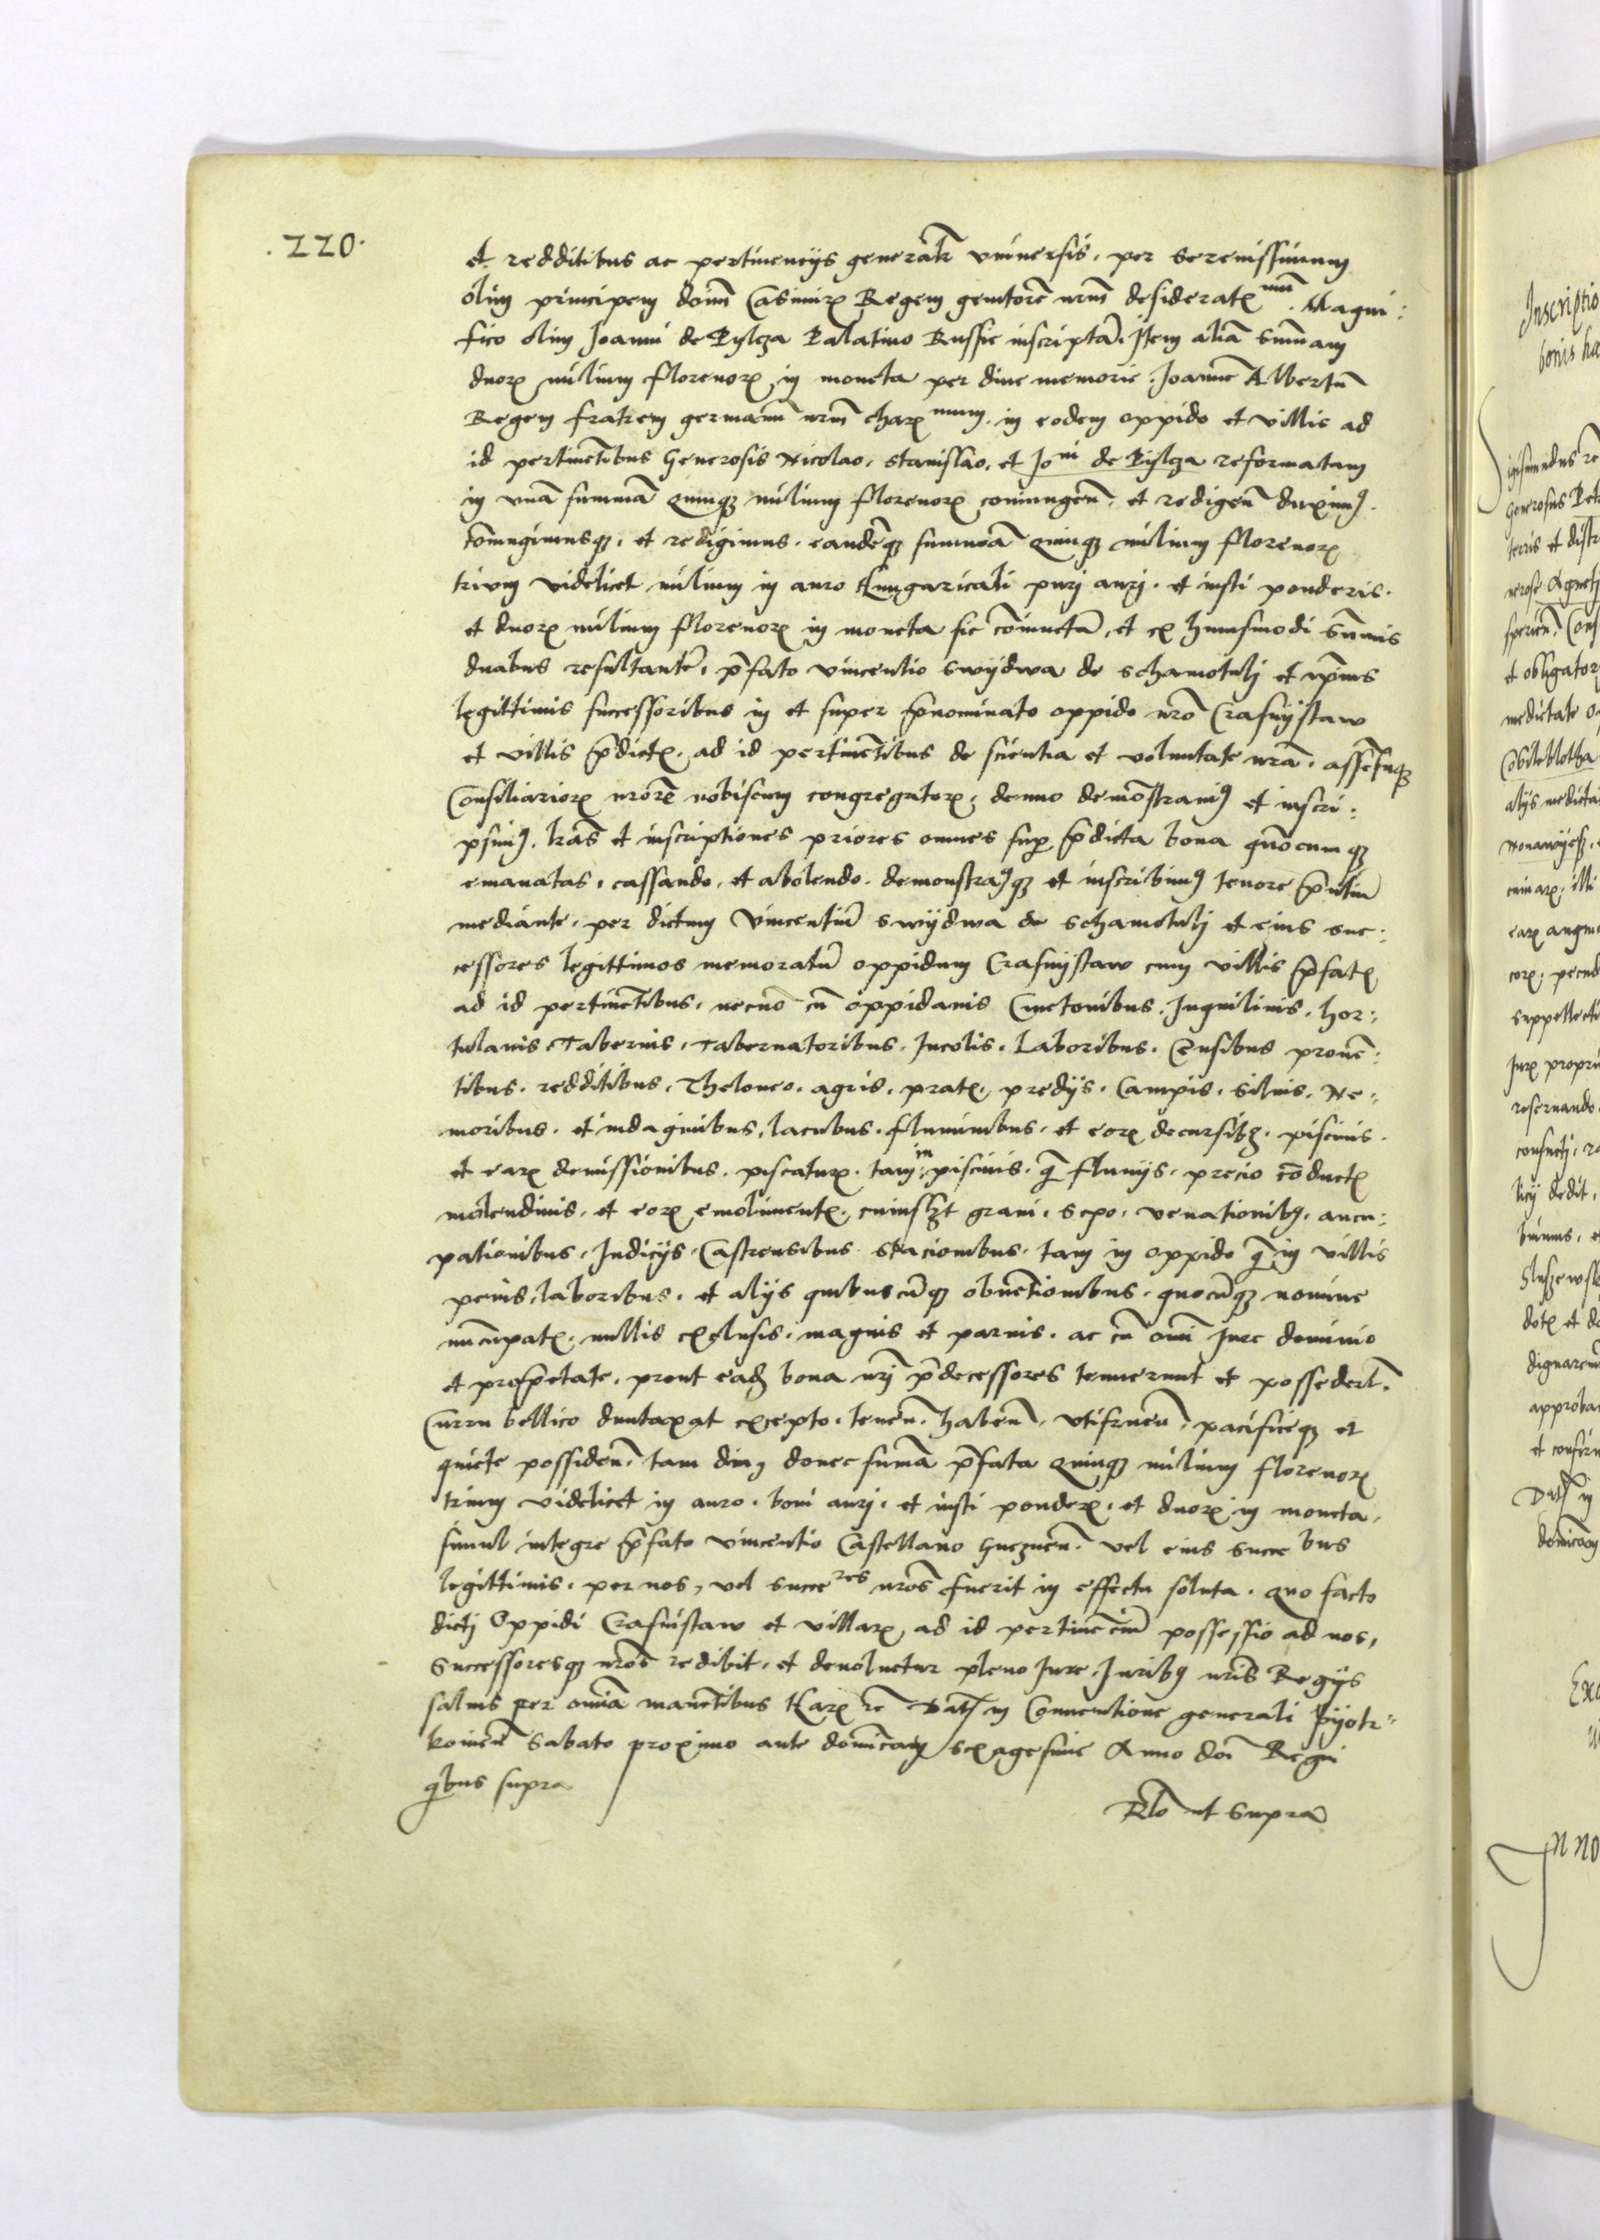 .220.
et redditibus ac pertinencijs generatr vniuersis, per serenissimum
olim principem domn Casimirz Regem genitore nrm desideratz mum. Magni:
fico olim Joanni de Pylcza Palatino Russie inscripta. Item alia summam
duorz milium florenorz in moneta per diue memorie Joanne Albertu
Regem fratrem germanu nrm charz mum in eodem oppido et villis ad
id pertinetibus Generosis Nicolao, Stanislao, et Jo ni de Pylcza reformatam
in vna summa quinqz milium florenorz coniungen et redigen duximq.
coniugimusqz, et redigimus. eandeqz summa quinqz milium florenorz
trium videlicet milium in auro Hungaricali puri auri. et iusti ponderis.
et duorz milium florenorz in moneta sic coniuncta, et ex huiusmodi summis
duabus resultante, pfato vincentio swydwa de schamotuli et ipius
legittimis successoribus in et super pnominato oppido nro Crasnystaw
et villis pdictz. ad id pertinetibus de scientia et voluntate nra. assesuqz
Consiliariorz nrore nobiscum congregatorz, denuo demostrauimq et inscri:
psimq. lras et inscriptiones priores omnes sup pdicta bona quocumqz
emanatas, cassando, et abolendo. demonstramqz et inscribimq tenore pntiu
mediante, per dictum Vincentiu swydwa de schamotuli et eius suc:
cessores legittimos memoratu oppidum Crasnystaw cum villis pfatz
ad id pertinetibus, necno cu oppidanis Cmetonibus. Inquilinis. hor:
tulanis, Tabernis, Tabernatoribus. Incolis. Laboribus. Censibus prouen:
tibus. redditibus, Theloneo. agris, pratz, predijs. Campis. siluis. Ne:
moribus. et indaginibus, lacubus. fluminibus. et eorz decursibz. piscinis.
et earz demissionibus. piscaturz. tam in piscinis. q fluuijs. precio coductz
molendinis, et eorz emolimentz, cuiuslzt grani. sepo. venationibq, aucu:
pationibus, Iudicijs. Castrensibus stacionibus, tam in oppido q in villis
penis, laboribus, et alijs quibuscuqz obuentionibus. quocuqz nomine
nucupatz, nullis exclusis, magnis et paruis. ac cu omi Jure dominio
et proprietate, prout eadz bona nri pdecessores tenuerunt et possedert.
Curru bellico duntaxat excepto, tenen. haben, vtifruen, pacificeqz et
quiete possiden. tam diu, donec suma pfata quinqz milium florenorz
trium videlicet in auro. boni auri, et iusti ponderz. et duorz in moneta,
simul integre pfato vincentio Castellano gneznen. vel eius succe bus
legittimis, per nos, vel succe res nros fuerit in effectu soluta. quo facto
dicti Oppidi Crasnistaw et villarz ad id pertinenciu possessio ad nos,
successoresqz nros redibit, et deuoluetur pleno Jure. Juribq nris Regijs
saluis per omia manetibus Harz re Datz in Conuentione generali Pyotr:
kouien Sabato proximo ante dominicam sexagesime Anno doi Regni
qbus supra
Rlo ut supra
Inscriptio
bonis
igismundus
Generosus
terris et distr
et obligator
medietate
alijs
approba
In no